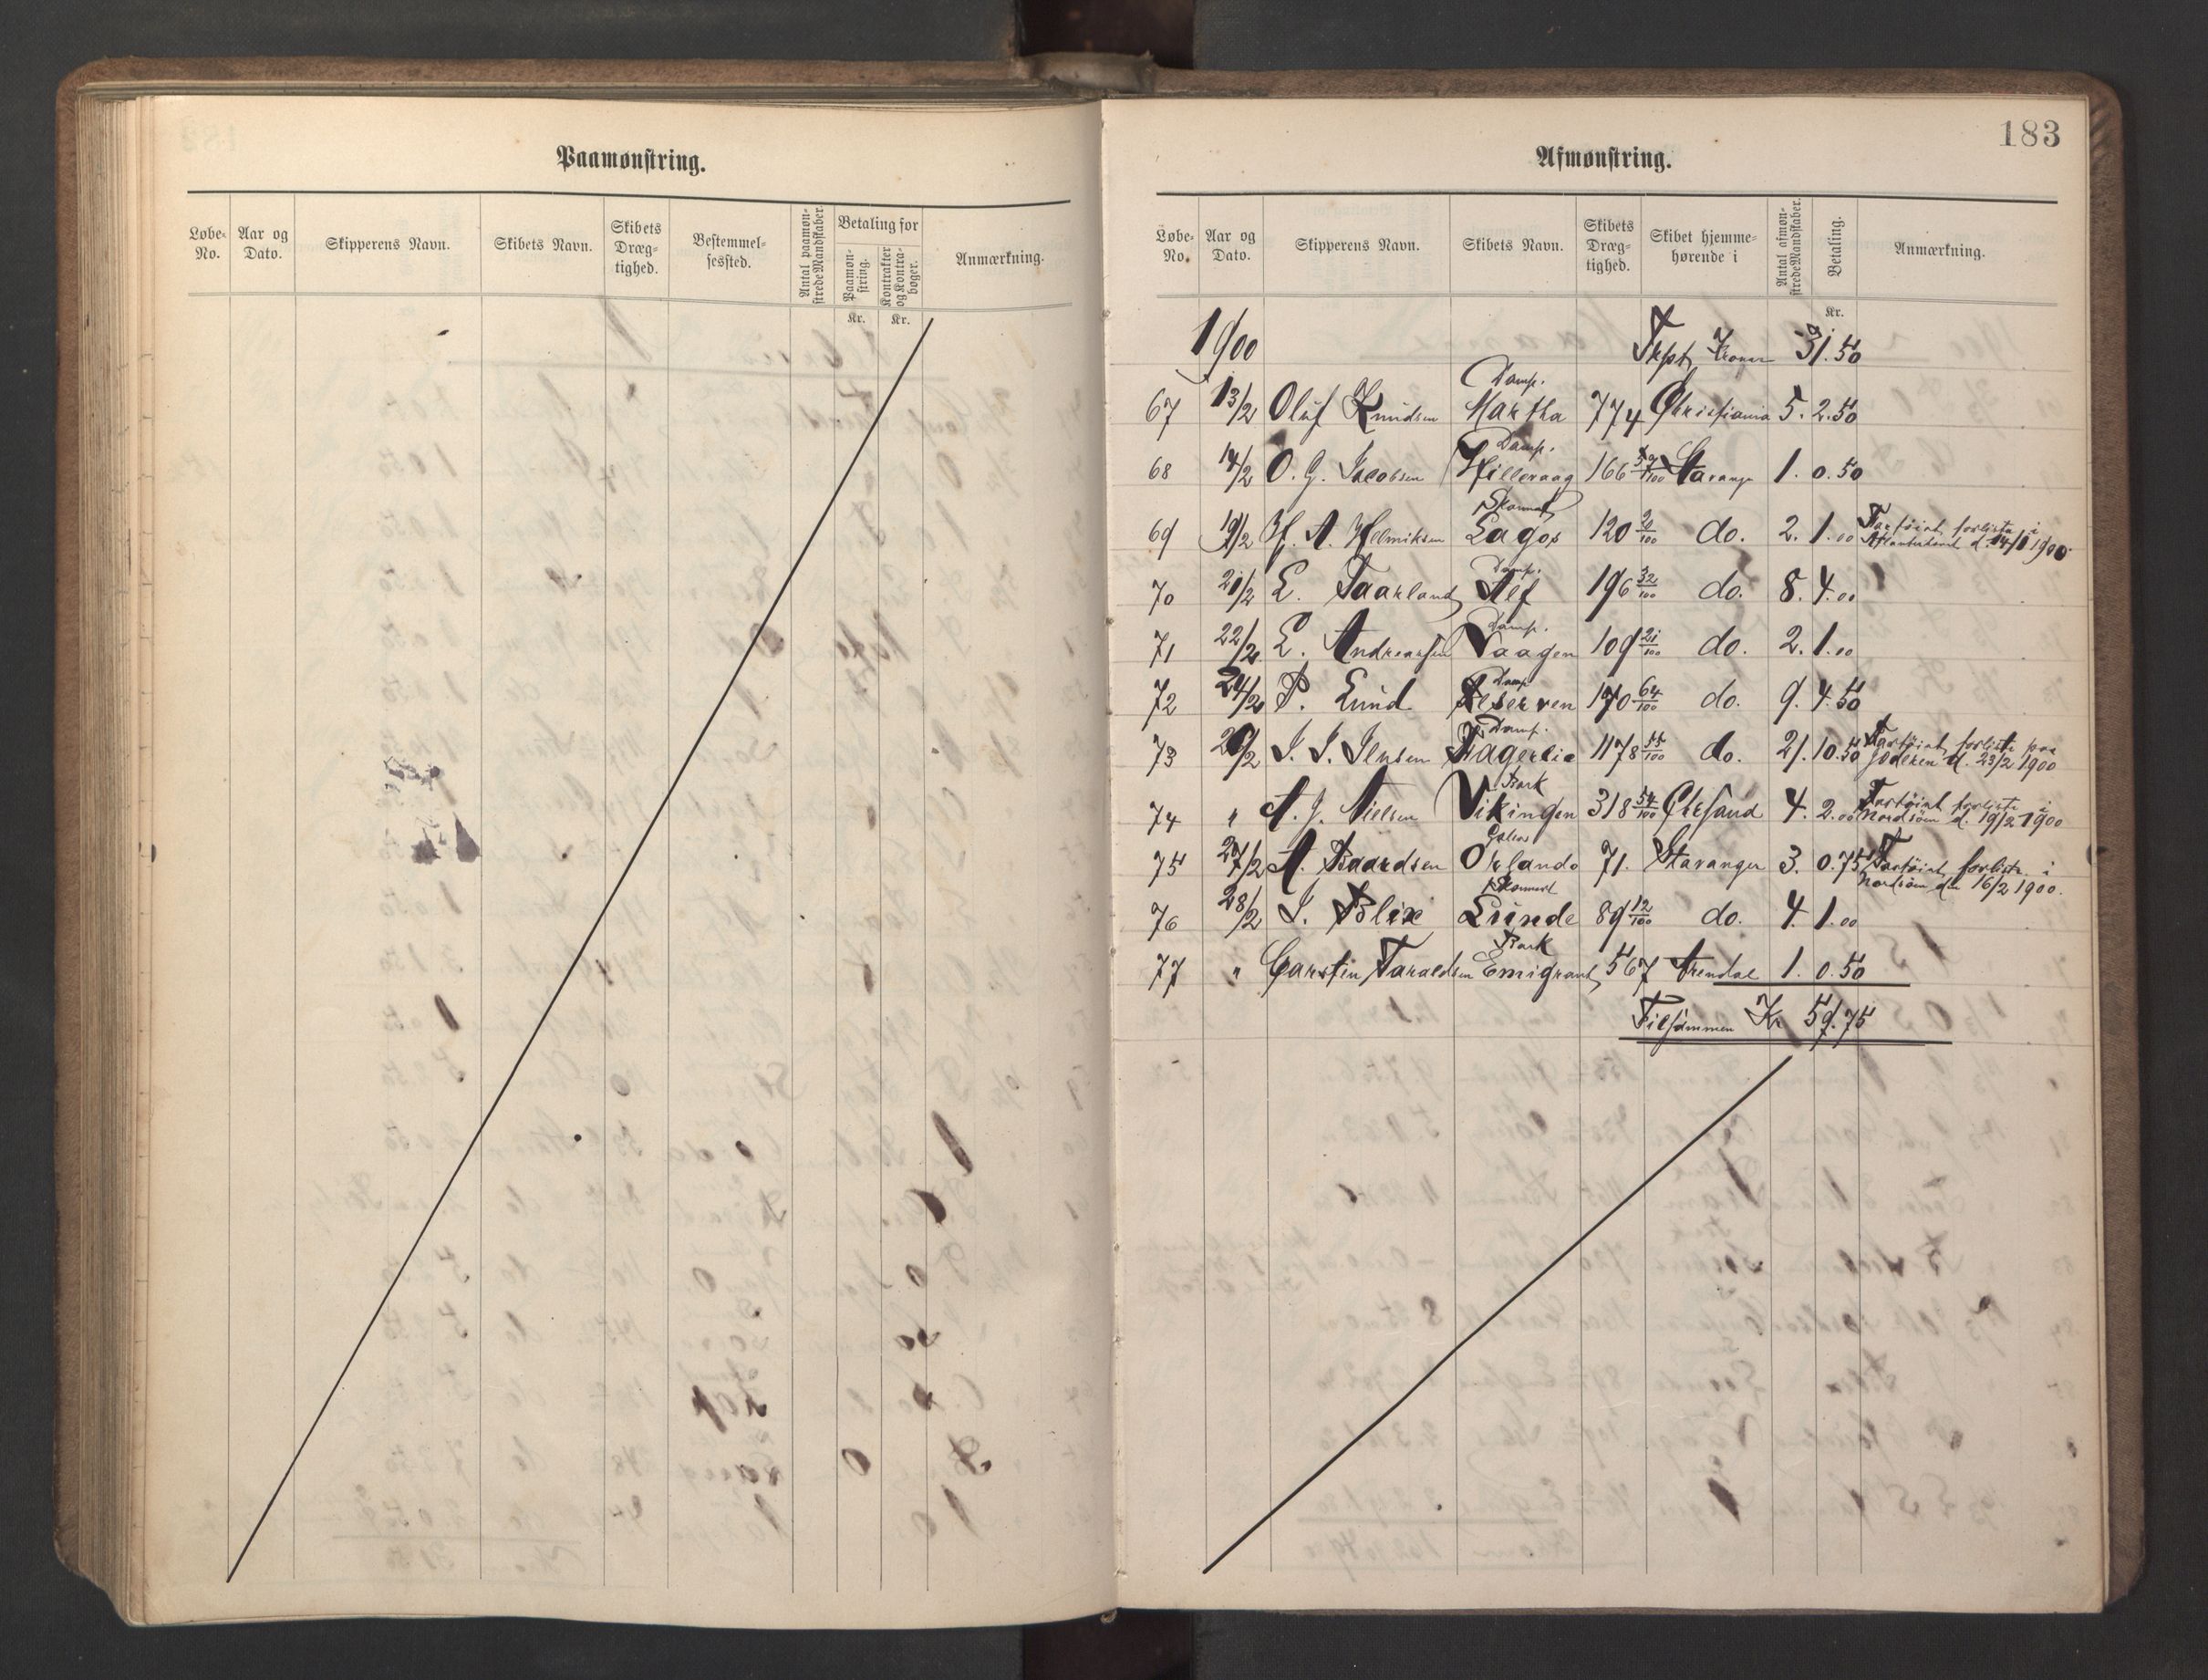 Paamønstring.
Løbe-No. Aar og Dato. Skipperens Navn. Skibets Navn. Skibets Dræg-tighed. Bestemmel-sessted. Antal paamøn-strede Mandskaber. Betaling for Paamøn-string. Kontrakter og Kontra-bøger. Anmærkning.
Kr. Kr.
183
Afmønstring.
Løbe-No. Aar og Dato. Skipperens Navn. Skibets Navn. Skibets Dræg-tighed. Skibet hjemme-hørende i Antal afmøn-strede Mandskaber. Betaling. Anmærkning.
Kr.
1900 Trspt. Kroner 31.50
67 13/2 Oluf Knudsen Damp. Martha 774 Christiania 5. 2.50
68 14/2 O. G. Jacobsen Damp. Hilleraag 166 Stavanger 1. 0.50
69 19/2 H. A. Helmiksen Skonnert Lagos 120 20/100 do. 2. 1.00 Fartøiet forliste i Atlanterhavet d. 14/1 1900
70 21/2 E. Taarland Damp. Alf 196 32/100 do. 8. 4.00
71 22/2 E. Andreassen Damp. Vaagen 109 21/100 do. 2. 1.00
72 24/2 P. Lund Damp. Reserven 190 64/100 do. 9. 4.50
73 26/2 J. J. Jensen Damp. Fagerlie 1178 55/100 do. 21. 10.50 Fartøiet forliste paa Jæderen d. 23/2 1900
74 " A. J. Nielsen Bark Vikingen 318 54/100 Chrsand 4. 2.00 Fartøiet forliste i Nordsøen d. 19/2 1900
75 27/2 A. Baardsen Galeas Orlando 71. Stavanger 3. 0.75 Fartøiet forliste i Nordsøen den 16/2 1900.
76 28/2 J. Blix Skonnert Lunde 89 12/100 do. 4. 1.00
77 " Carsten Taraldsen Bark Emigrant 567 Arendal 1. 0.50
Tilsammen Kr 59.75